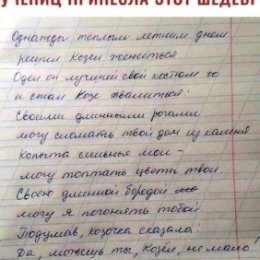 УЧЕНИЦ ПРИНЕСЛА ЭТОТ ШЕДЕВР
Однажды теплым летним днем
решил Козел жениться
Одел он лучший свой костюм
и стал Козе хвалиться:
Своими длинными рогами
могу сломать твой дом из камня
Копыта сильные мои -
могу топтать цветы твои.
Своею длинной бородой
могу я погонять тобой.
Подумав, козочка сказала:
Да, можешь ты, Козёл, не мало!